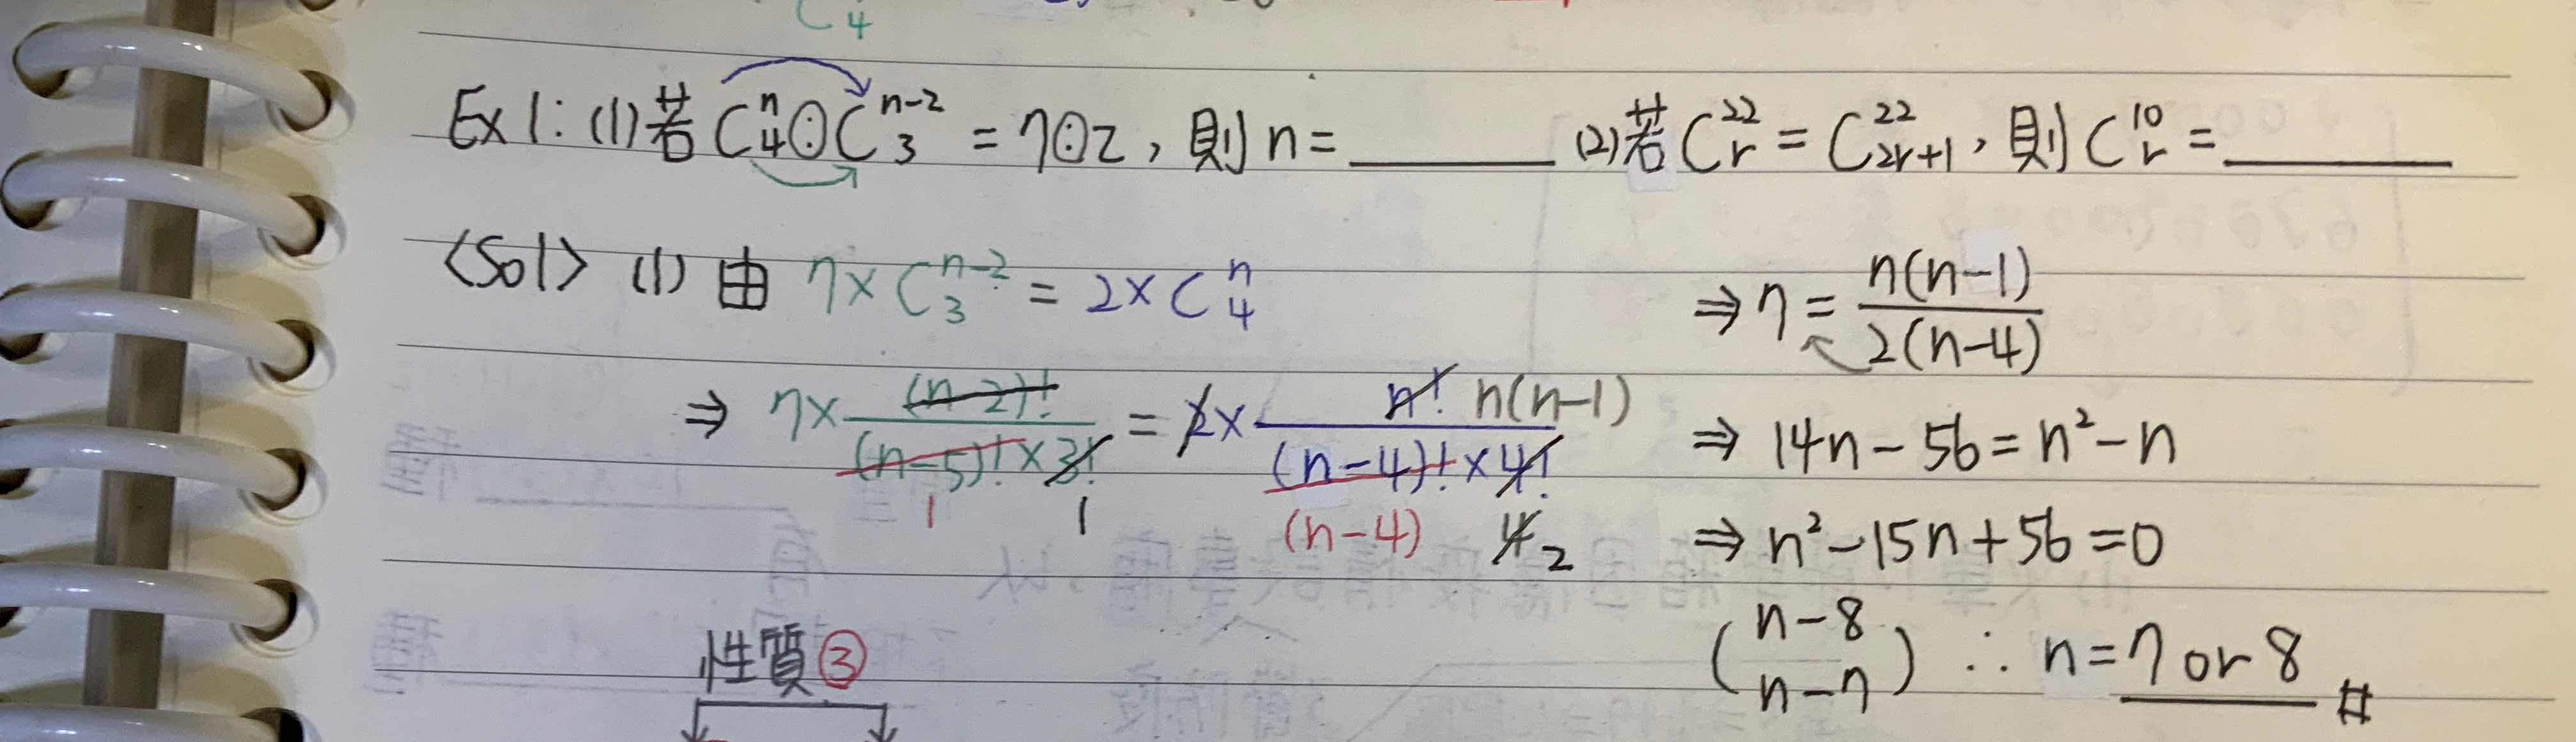 C 4
Ex 1: (1)若 C⁠ⁿ₄ : Cⁿ⁻²₃ = 7:2, 則 n = ______ (2)若 C²²ᵣ = C²²₂ᵣ₊₁, 則 C¹⁰ᵣ = ______
<Sol> (1) 由 7×Cⁿ⁻²₃ = 2×Cⁿ₄
⇒ 7× (n-2)! / ((n-5)!×3!) = 2× n! / ((n-4)!×4!) n(n-1)
1 1 (n-4) 4 2
⇒ 7 = n(n-1) / 2(n-4)
⇒ 14n - 56 = n² - n
⇒ n² - 15n + 56 = 0
(n-8 n-7) ∴ n = 7 or 8 #
性質③